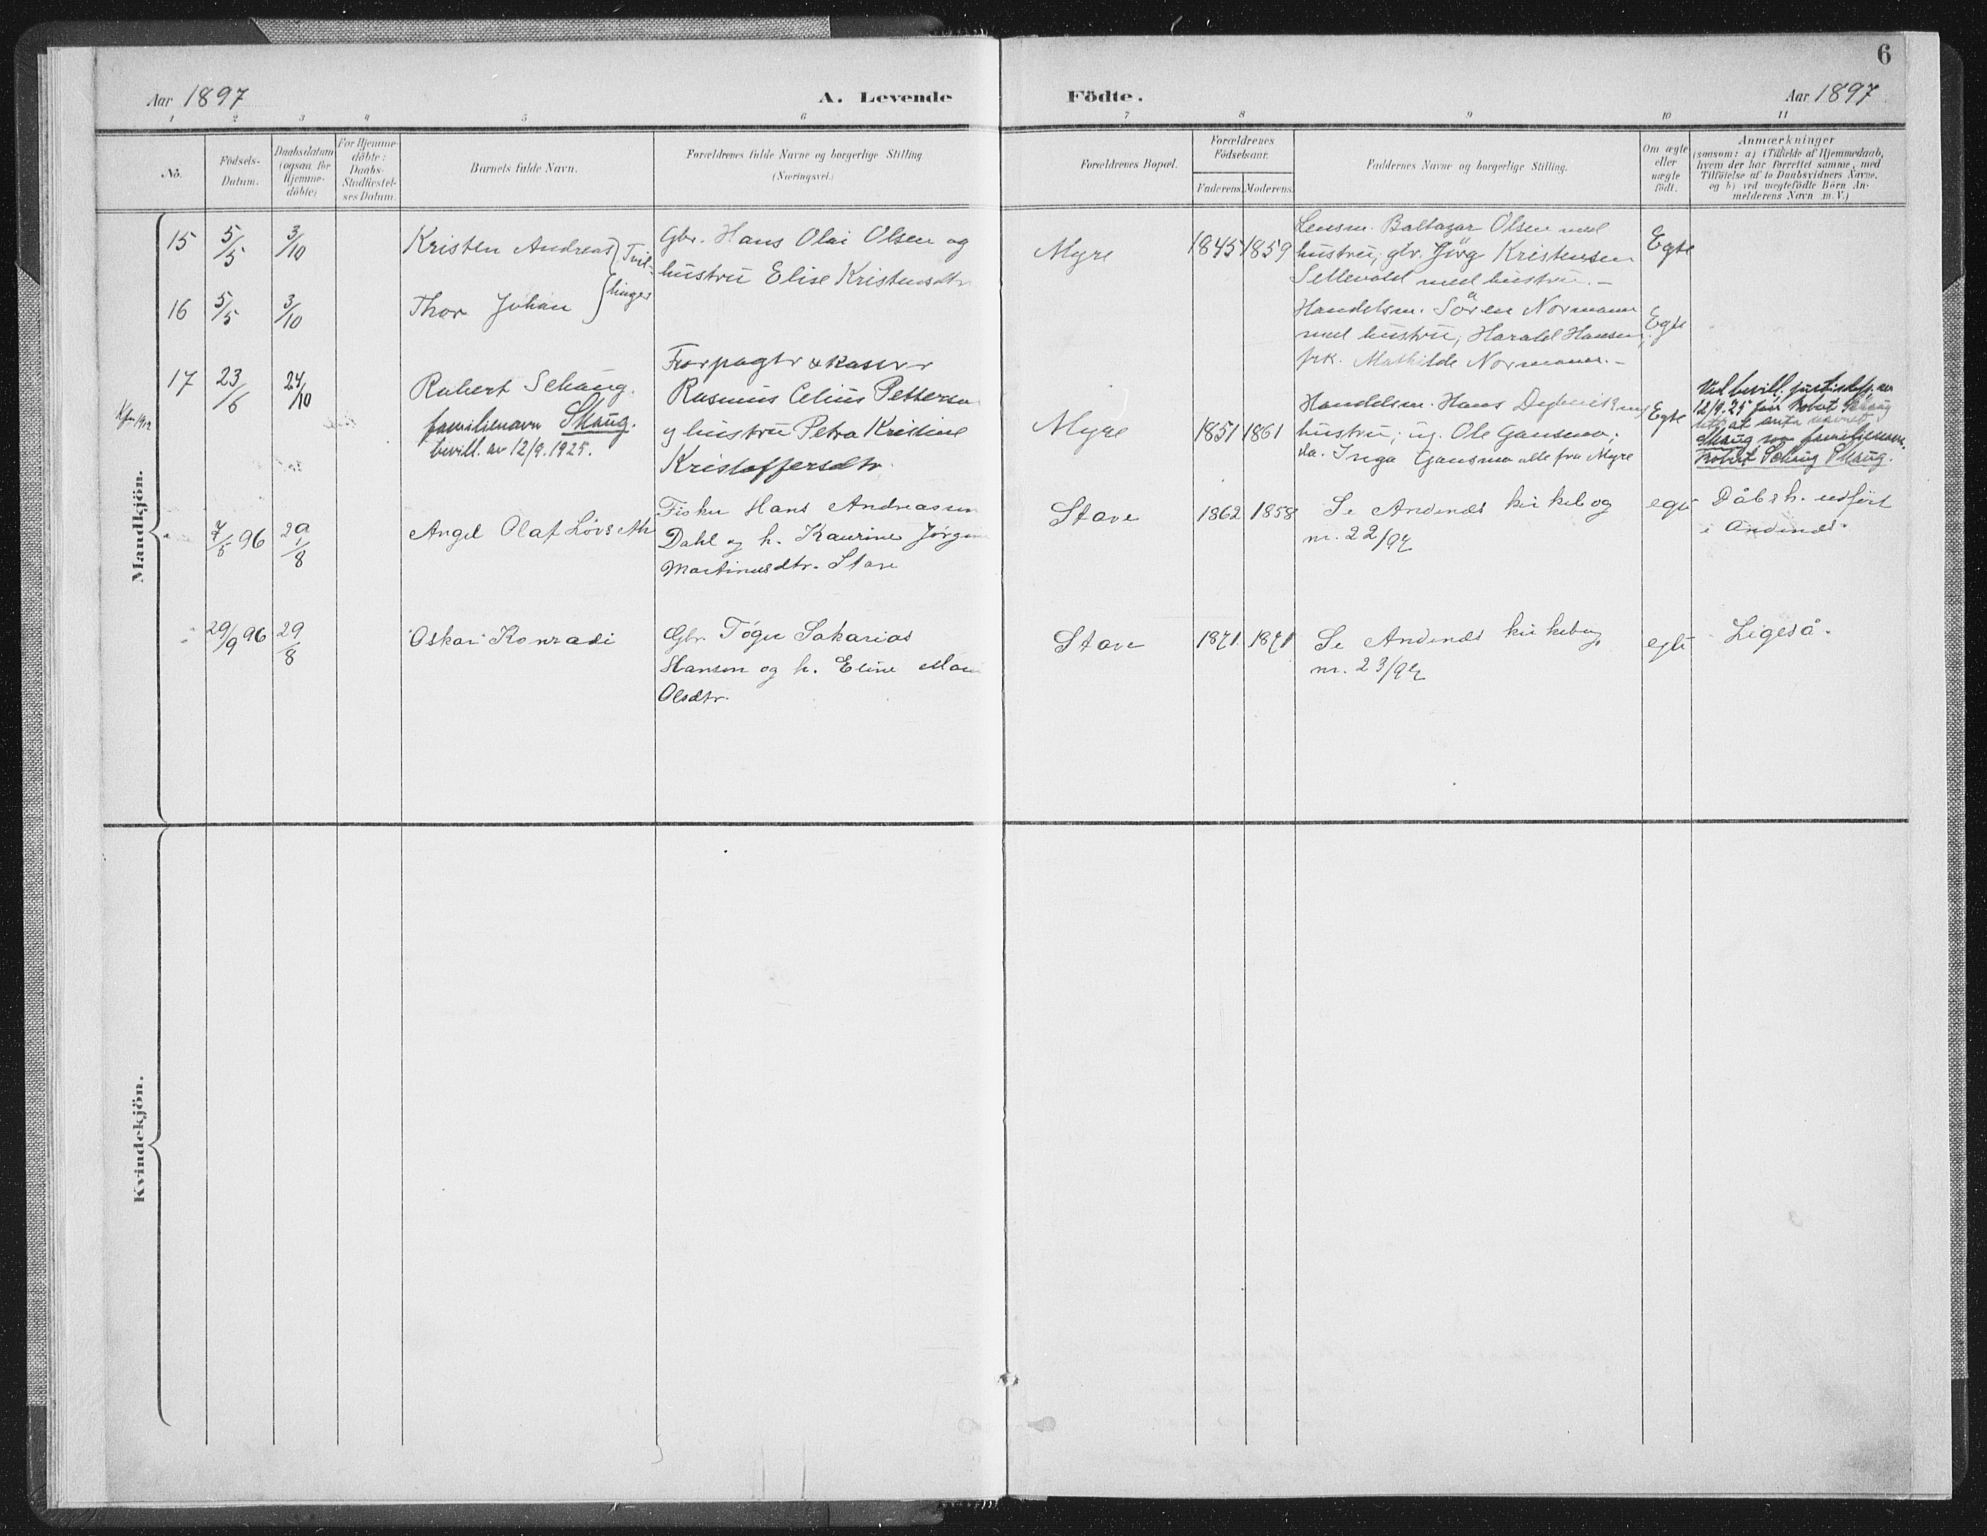 6
Aar 1897
A. Levende
Födte.
Aar 1897
1 2 3 4 5 6 7 8 9 10 11
No.
Födsels-
Datum.
Daabsdatum
(ogsaa for
Hjemme-
döbte)
For Hjemme-
döbte:
Daabs-
Stadfæstel-
ses Datum.
Barnets fulde Navn.
Forældrenes fulde Navne og borgerlige Stilling
(Næringsvei.)
Forældrenes Bopæl.
Forældrenes
Födselsaar.
Faderens. Moderens.
Faddernes Navne og borgerlige Stilling.
Om ægte
eller
uægte
födt.
Anmærkninger
(saasom: a) i Tilfælde af Hjemmedaab,
hvem der har forrettet samme, med
Tilföielse af to Daabsvidners Navne,
og b) ved uægtefödte Börn An-
melderens Navn m. V.)
Mandkjön.
15
5/5
3/10
Kristen Andreas
Tvil-
linger
Gbr. Hans Olai Olsen og
hustru Elise Kristensdtr
Myre
1845 1859
Lensm. Baltazar Olsen med
hustru, gbr. Jörg Kristensen
Sellevold med hustru.-
Egte
16
5/5
3/10
Thor Johan
Handelsm. Sören Normann
med hustru, Harald Hansen,
frk. Mathilde Normann.-
Egte
17
23/6
24/10
Robert Schaug.
familienavn Skaug.
bevill. av 12/9.1925.
Forpagter & kaserer
Rasmus Celius Petterson
og hustru Petra Kristine
Kristoffersdtr.
Myre
1851 1861
Handelsm. Hans med
hustru; ug. Ole Gansmo,
da. Inga Gansmo alle fra Myre
Egte
Ved bevill. justisdep. av
12/9.25 Robert Schaug
at anta navnet
Skaug som familienavn.
Robert Schaug Skaug.
7/5 96
29/8
Angel Olaf
Fisker Hans Andreassen
Dahl og h. Kaurine Jørgine
Martinusdtr. Stave
Stave
1862 1858
Se Andenæs kirkebog
nr. 22/97
egte
Dåb & h. udført
i Andenæs.
29/9 96
29/8
Oskar Konradi
Gbr. Tøger Sakarias
Hansen og h. Eline Marie
Olsdtr.
Stave
1871 1871
Se Andenæs kirkebog
nr. 23/97
egte
Ligeså.
Kvindekjön.